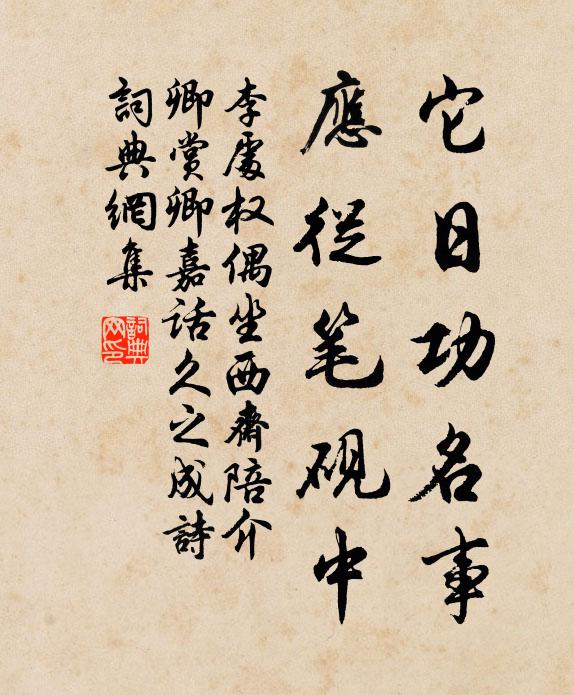 它日功名事
應從笔硯中
李處权偶坐西齋陪介
卿赏卿嘉話久之成詩
詞典網集
詞典
网印